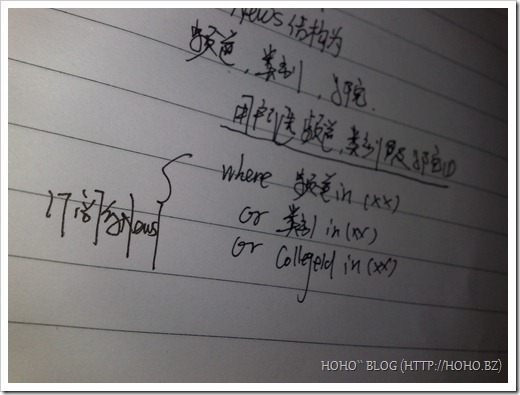 News结构为
频道,类别,学院.
用户订阅频道,类别及学院ID
where 频道 in (xx)
or 类别 in (xx)
or CollegeId in (xx)
News
HOHO`` BLOG (HTTP://HOHO.BZ)